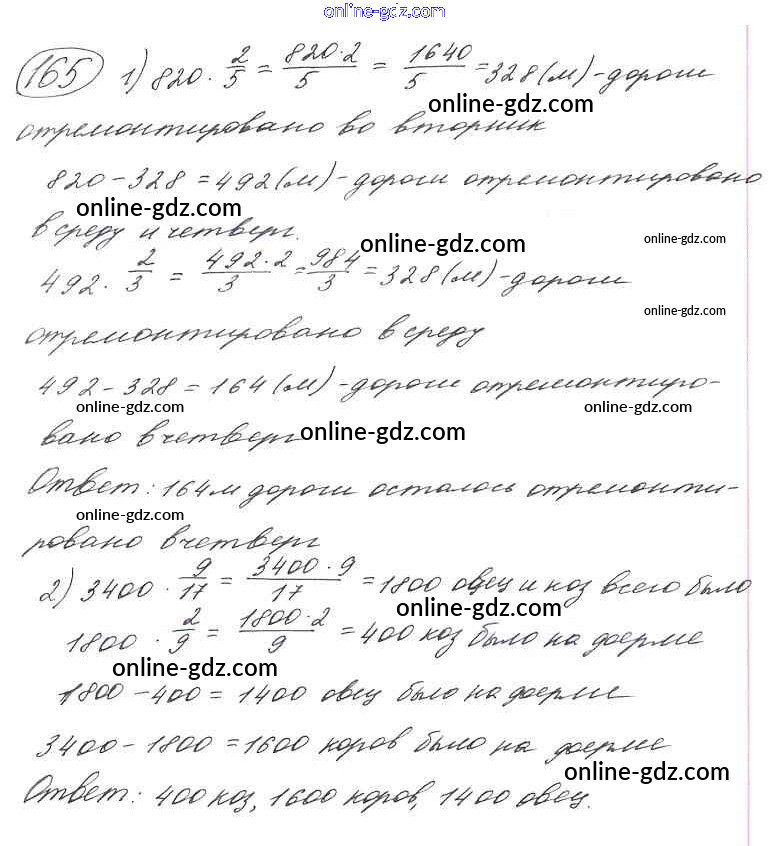 online-gdz.com
165 1) 820 · 2/5 = 820·2/5 = 1640/5 = 328 (м) - дороги
online-gdz.com
отремонтировано во вторник
820 - 328 = 492 (м) - дороги отремонтировано
online-gdz.com
в среду и четверг.
online-gdz.com
online-gdz.com
492 · 2/3 = 492·2/3 = 984/3 = 328 (м) - дороги
online-gdz.com
отремонтировано в среду
492 - 328 = 164 (м) - дороги отремонтиро-
online-gdz.com
online-gdz.com
вано в четверг
online-gdz.com
Ответ: 164 м дороги осталось отремонти-
online-gdz.com
ровано в четверг
2) 3400 · 9/17 = 3400·9/17 = 1800 овец и коз всего было
online-gdz.com
1800 · 2/9 = 1800·2/9 = 400 коз было на ферме
online-gdz.com
1800 - 400 = 1400 овец было на ферме
3400 - 1800 = 1600 коров было на ферме
online-gdz.com
Ответ: 400 коз, 1600 коров, 1400 овец.